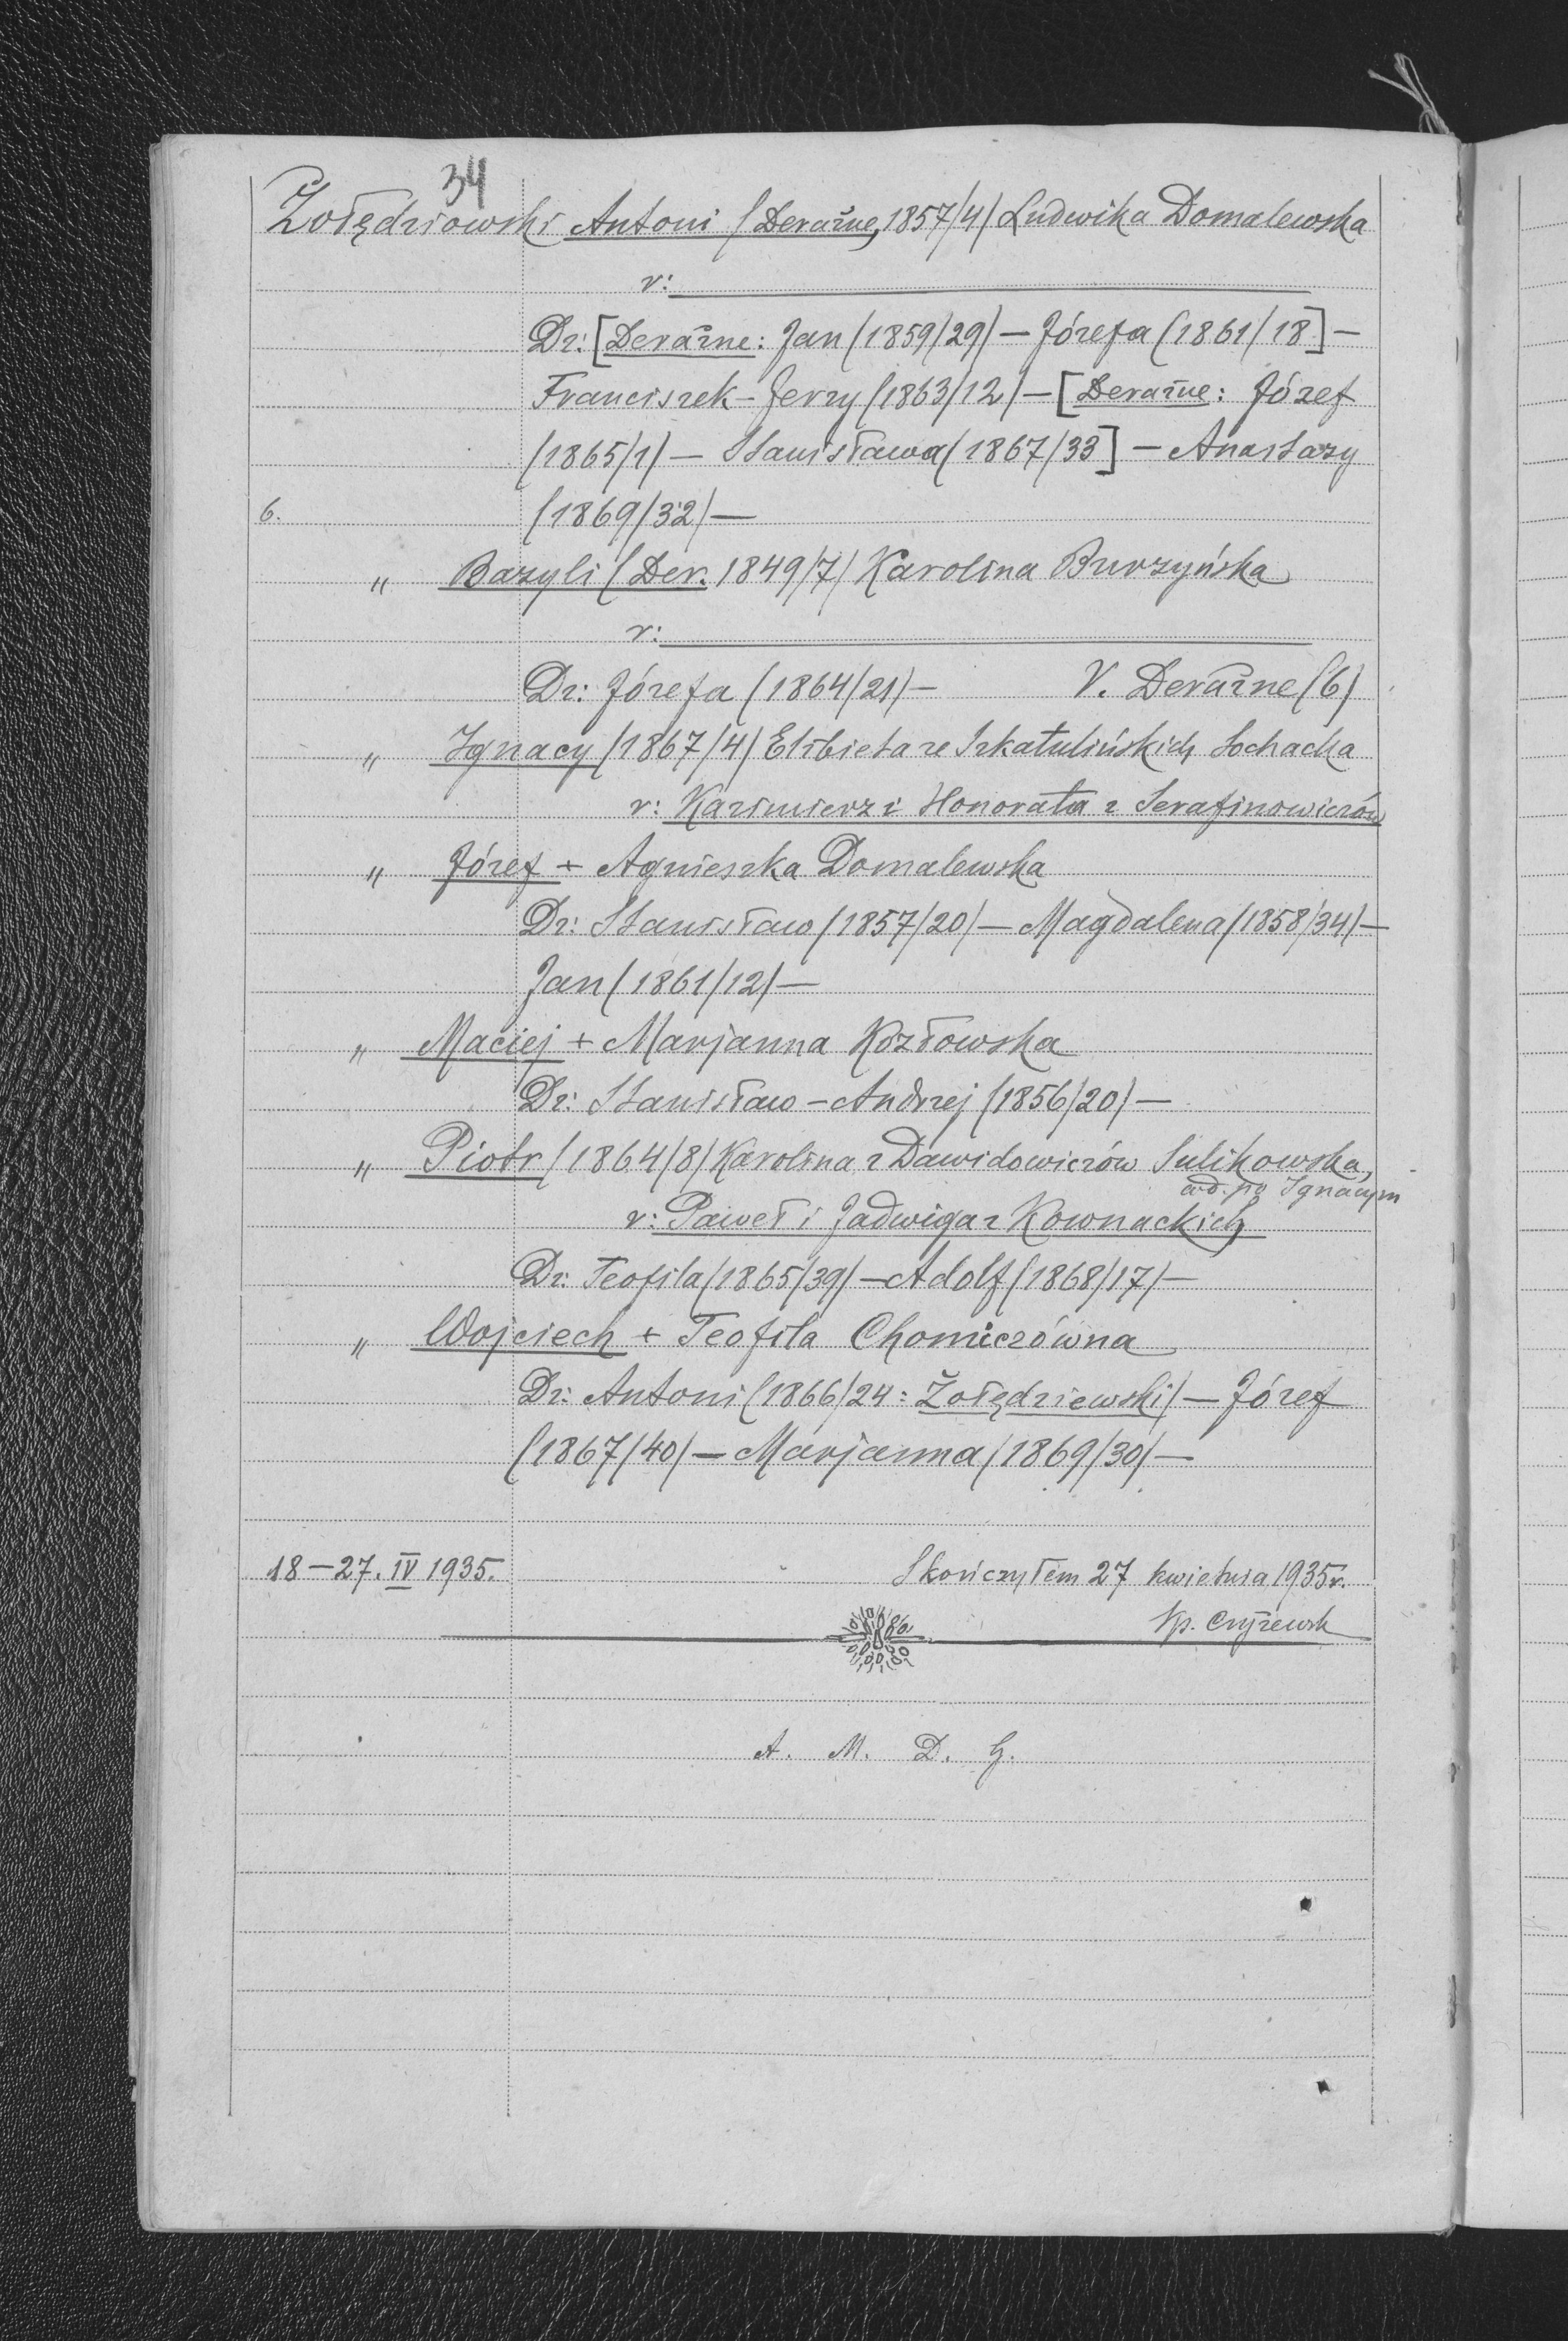 34
Żołędziowski Antoni (Deraźne, 1857/4) Ludwika Domalewska
r:
Dz: [Deraźne: Jan (1859/29) — Józefa (1861/18] —
Franciszek - Jerzy (1863/12) — [Deraźne: Józef
(1865/1) — Stanisława (1867/33] — Anastazy
6. (1869/32) —
" Bazyli (Der. 1849/7) Karolina Burzyńska
r:
Dz: Józefa (1864/21) — V. Deraźne (6)
" Ignacy (1867/4) Elżbieta ze Szkatulińskich Sochacka
r: Kazimierz i Honorata z Serafinowiczów
" Józef + Agnieszka Domalewska
Dz: Stanisław (1857/20) — Magdalena (1858/34) —
Jan (1861/12) —
" Maciej + Marjanna Kozłowska
Dz: Stanisław - Andrzej (1856/20) —
" Piotr (1864/8) Karolina z Dawidowiczów Sulikowska,
wd. po Ignacym
r: Paweł i Jadwiga z Kownackich
Dz: Teofila (1865/39) — Adolf (1868/17) —
" Wojciech + Teofila Chomiczówna
Dz: Antoni (1866/24: Żołędziewski) — Józef
(1867/40) — Marjanna (1869/30) —
18 — 27. IV 1935. Skończyłem 27 kwietnia 1935 r.
A. M. D. G.